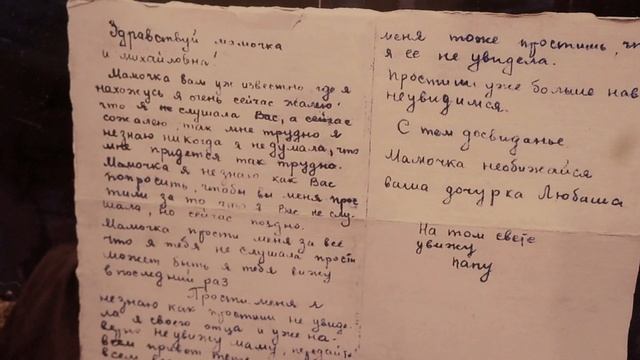 Здравствуй мамочка
и михайловна!
Мамочка вам уж известно где я
нахожусь я очень сейчас жалею,
что я не слушала Вас, а сейчас
сожалею, так мне трудно я
незнаю никогда я не думала, что
мне придется так трудно.
Мамочка я не знаю как Вас
попросить, чтобы вы меня прос
тили за то что я Вас не слу-
шала, но сейчас поздно.
Мамочка прости меня за все
что я тебя не слушала прости
может быть я тебя вижу
в последний раз
Прости меня я
незнаю как простиш не увиде-
ла я своего отца и уже на-
верно не увижу маму, передайте
всем привет
всем
меня тоже простишь, что
я её не увидела.
Простиш уже больше нав
неувидимся.
С тем досвиданье
Мамочка необижайся
ваша дочурка Любаша
На том свете
увижу
папу